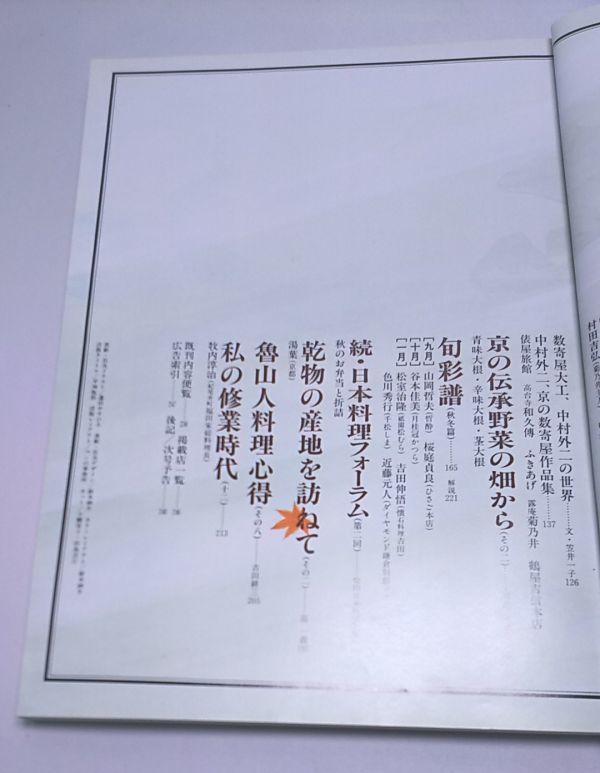 村田吉弘
数寄屋大工、中村外二の世界………文・笠井一子 126
中村外二、京の数寄屋作品集………137
俵屋旅館 高台寺和久傳 ふきあげ 露庵菊乃井 鶴屋吉信本店
京の伝承野菜の畑から(その二)
青味大根・辛味大根・茎大根
旬彩譜(秋冬篇)………165 解説221
[九月]山岡哲夫(哲酔) 桜庭貞良(ひさご本店)
[十月]谷本佳美(月桂冠かつら) 吉田伸悟(懐石料理吉田)
[一月]松室治隆(祇園松むら) 近藤元人(ダイヤモンド鎌倉別邸
色川秀行(千松しま)
続・日本料理フォーラム(第二回)
秋のお弁当と折詰
乾物の産地を訪ねて(その二)
湯葉(京都)
魯山人料理心得(その八)——吉田耕三 205
私の修業時代(十二)——213
牧内淳治
既刊内容便覧 掲載店一覧
広告索引 後記/次号予告